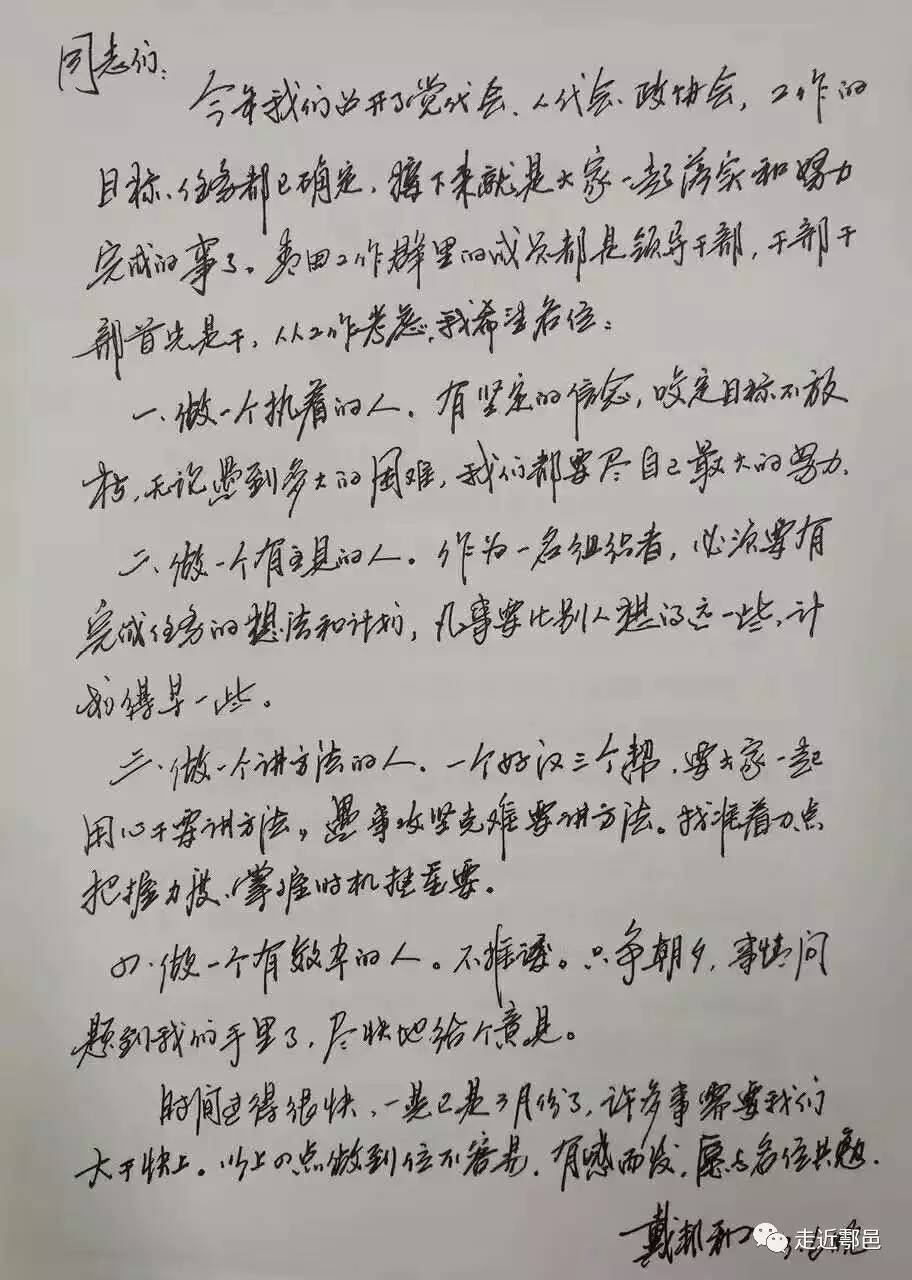 同志们:
今年我们召开了党代会、人代会、政协会,工作的
目标、任务都已确定,接下来就是大家一起落实和努力
完成的事了。青田工作群里的成员都是领导干部,干部干
部首先是干,从工作考虑,我希望各位:
一、做一个执着的人。有坚定的信念,咬定目标不放
松,无论遇到多大的困难,我们都要尽自己最大的努力.
二、做一个有主见的人。作为一名组织者,必须要有
完成任务的想法和计划,凡事要比别人想得远一些,计
划得早一些。
三、做一个讲方法的人.一个好汉三个帮,要大家一起
用心干要讲方法,遇事攻坚克难要讲方法。找准着力点
把握力度、掌准时机挺重要。
四、做一个有效率的人。不推诿。只争朝夕,事情问
题到我们手里了,尽快地给个意见。
时间过得很快,一晃已是3月份了,许多事需要我们
大干快上。以上四点做到位不容易,有感而发,愿与各位共勉.
戴邦和
走近鄠邑